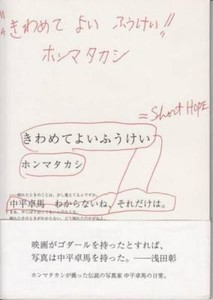 "きわめて よい ふうけい"
ホンマタカシ
= Short HOPE
きわめてよいふうけい
ホンマタカシ
中平卓馬 わからないね、それだけは。
映画がゴダールを持ったとすれば、
写真は中平卓馬を持った。——浅田彰
ホンマタカシが撮った伝説の写真家 中平卓馬の日常。